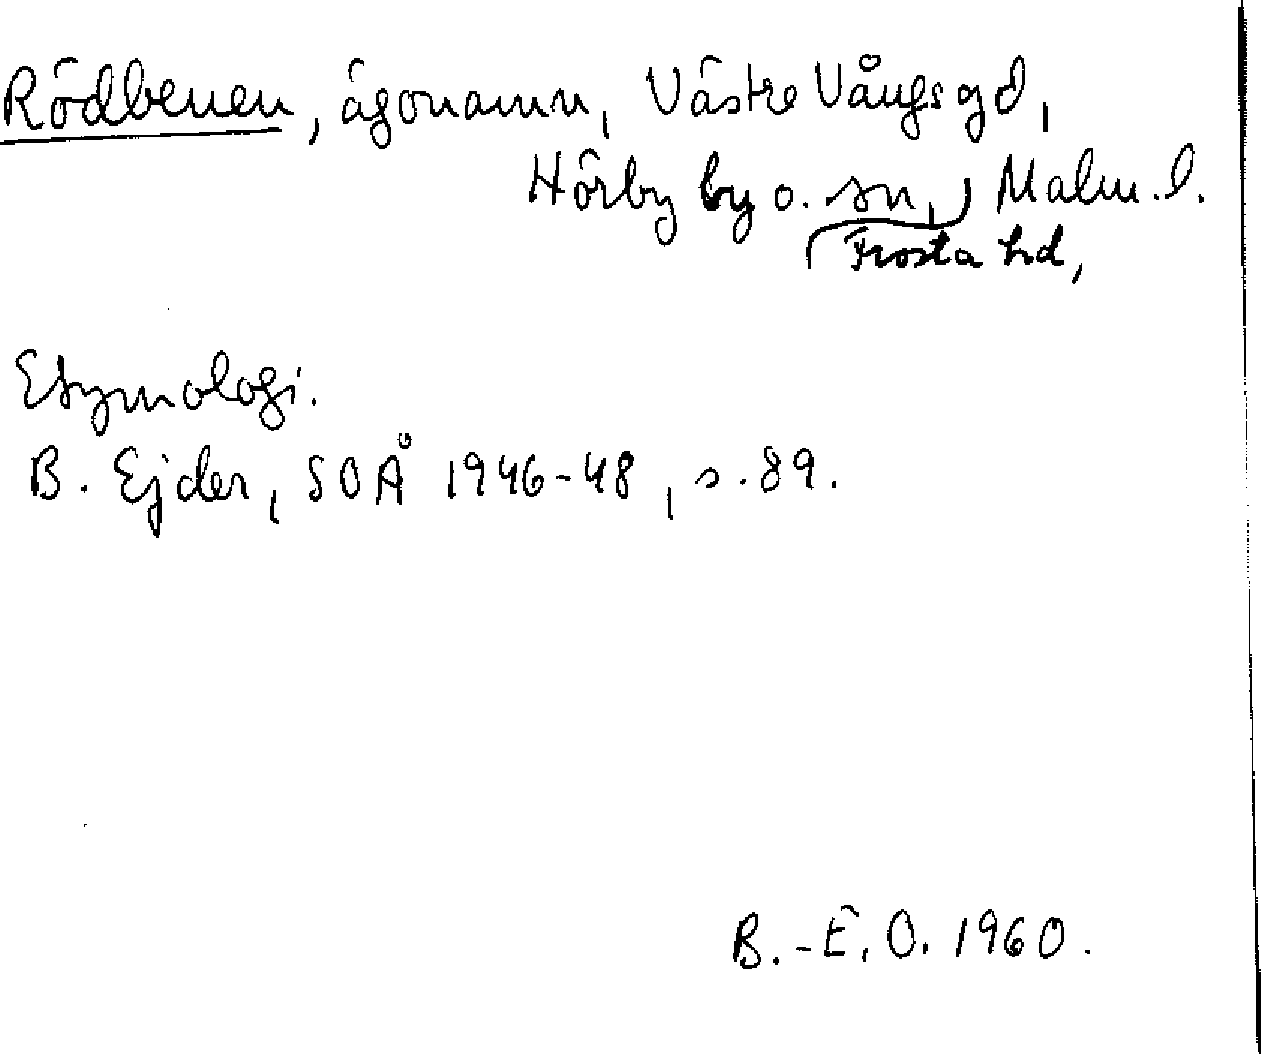 Rödbenen, ägonamn, Västre Vångs gd,
Hörby by o. sn, Malm. l.
Frosta hd,
Etymologi.
B. Ejder, SOÅ 1946-48, s. 89.
B.-E. O. 1960.